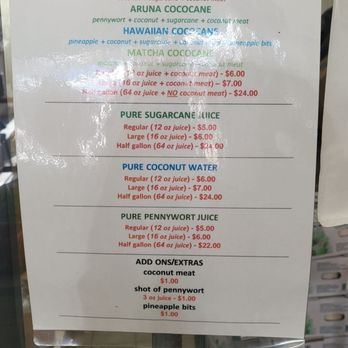 ARUNA COCOCANE
pennywort + coconut + sugarcane + coconut meat
HAWAIIAN COCOCANE
pineapple + coconut + sugarcane + coconut + pineapple bits
MATCHA COCOCANE
matcha + coconut + sugarcane + coconut meat
(12 oz juice + coconut meat) - $6.00
(16 oz juice + coconut meat) - $7.00
Half gallon (64 oz juice + NO coconut meat) - $24.00
PURE SUGARCANE JUICE
Regular (12 oz juice) - $5.00
Large (16 oz juice) - $6.00
Half gallon (64 oz juice) - $24.00
PURE COCONUT WATER
Regular (12 oz juice) - $6.00
Large (16 oz juice) - $7.00
Half gallon (64 oz juice) - $24.00
PURE PENNYWORT JUICE
Regular (12 oz juice) - $5.00
Large (16 oz juice) - $6.00
Half gallon (64 oz juice) - $22.00
ADD ONS/EXTRAS
coconut meat
$1.00
shot of pennywort
3 oz juice - $1.00
pineapple bits
$1.00